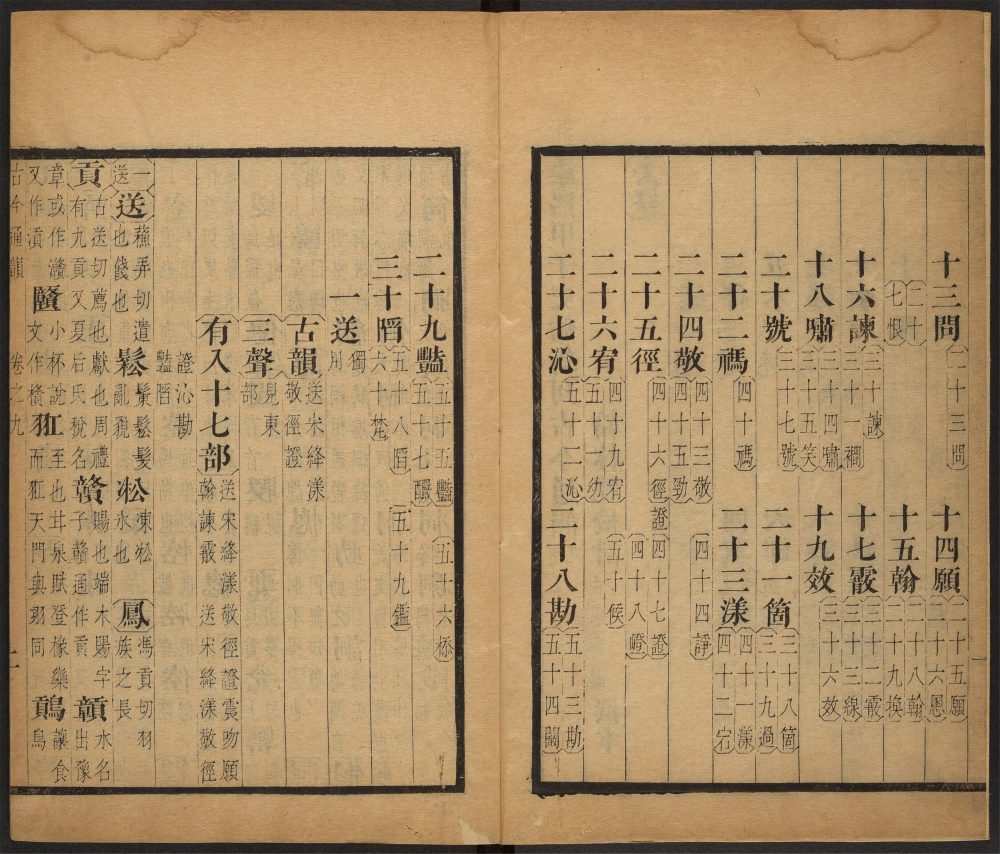 十三問 二十三問 十四願 二十五願 二十六慁
二十七恨 十五翰 二十八翰 二十九換
十六諫 三十諫 三十一襇 十七霰 三十二霰 三十三線
十八嘯 三十四嘯 三十五笑 十九效 三十六效
二十號 三十七號 二十一箇 三十八箇 三十九過
二十二禡 四十禡 二十三漾 四十一漾 四十二宕
二十四敬 四十三敬 四十五勁 四十四諍
二十五徑 四十六徑 證 四十七證 四十八嶝
二十六宥 四十九宥 五十一幼 五十候
二十七沁 五十二沁 二十八勘 五十三勘 五十四闞
二十九豔 五十五豔 五十七釅 五十六㮇
三十陷 五十八陷 六十梵 五十九鑑
一送 獨用
古韻 送宋絳漾敬徑證
三聲 見東部
有入十七部 送宋絳漾敬徑證震吻願翰諫霰送宋絳漾敬徑
證沁勘豔陷
一送 送 蘓弄切遣也餞也 鬆 鬇鬆髮亂貌 凇 凍凇水也 鳳 馮貢切羽族之長
貢 古送切薦也獻也周禮有九貢又夏后氏稅名 贛 賜也端木賜字子贛通作貢又 水名出豫
章或作灨又作 小杯說文作 至也甘泉賦登椽欒而 天門與羽同 鳥
古今通韻 卷之九 二